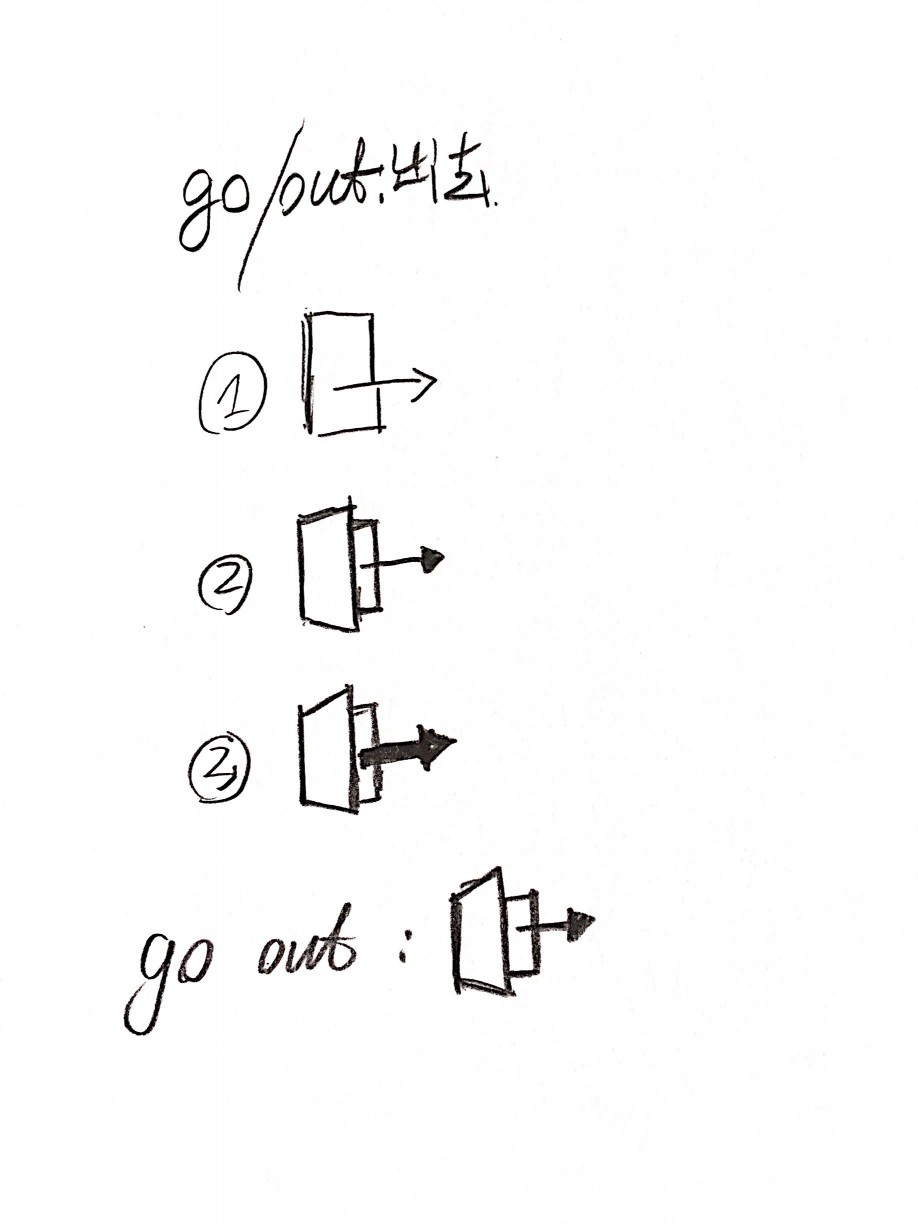 go/out:비출.
①
②
②
go out :